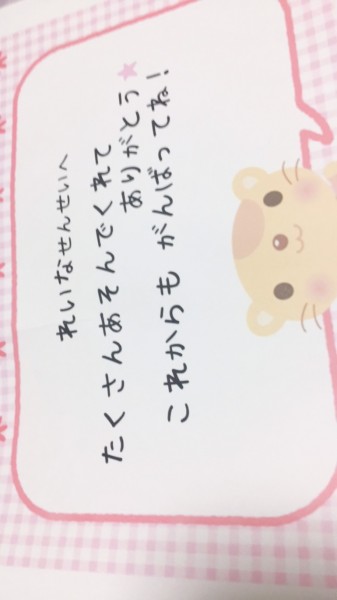 れいなせんせいへ
たくさんあそんでくれて
ありがとう
これからも がんばってね!